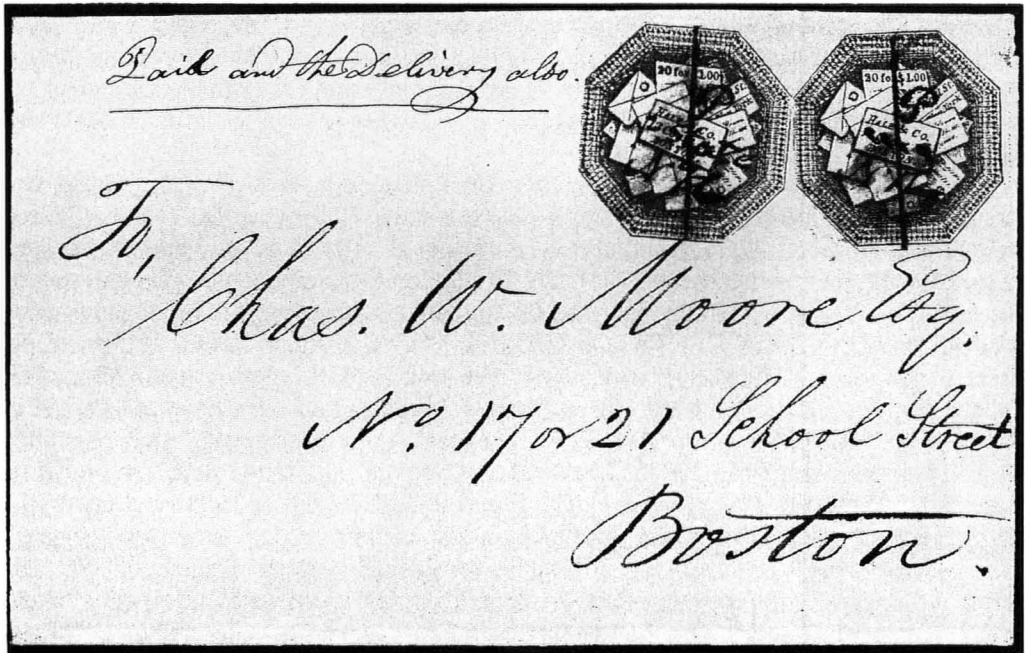 Paid and the Delivery also.
20 for $1.00
Hale & Co.
20 for $1.00
Hale & Co.
To,
Chas. W. Moore Esq.
No. 17 or 21 School Street
Boston.